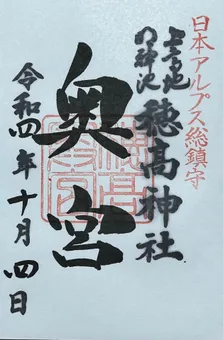 日本アルプス総鎮守
上高地
の神池
穂高神社
奥宮
令和四年十月四日